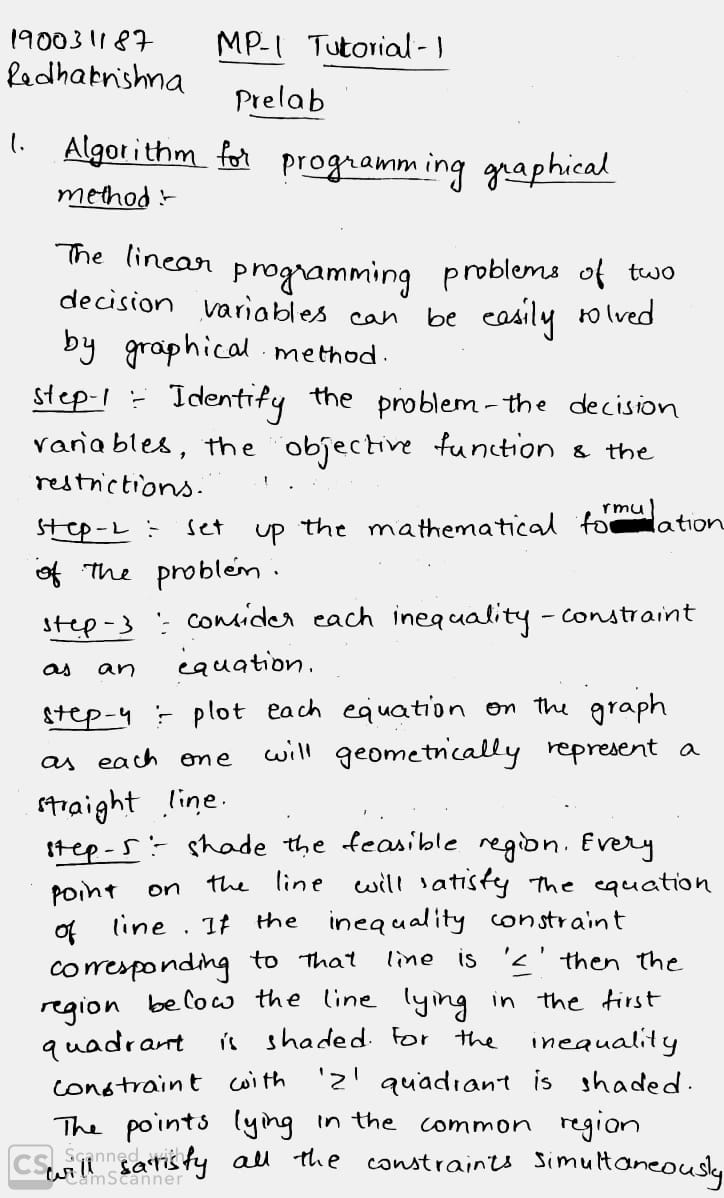 190031187 MP-1 Tutorial-1
Redhakrishna
Prelab
1. Algorithm for programming graphical
method :-
The linear programming problems of two
decision variables can be easily solved
by graphical method.
step-1 :- Identify the problem - the decision
variables, the objective function & the
restrictions.
step-2 :- set up the mathematical formulation
of the problem.
step-3 :- consider each inequality - constraint
as an equation.
step-4 :- plot each equation on the graph
as each one will geometrically represent a
straight line.
step-5 :- shade the feasible region. Every
point on the line will satisfy the equation
of line. If the inequality constraint
corresponding to that line is '≤' then the
region below the line lying in the first
quadrant is shaded. For the inequality
constraint with '≥' quadrant is shaded.
The points lying in the common region
will satisfy all the constraints simultaneously
CS Scanned with
CamScanner